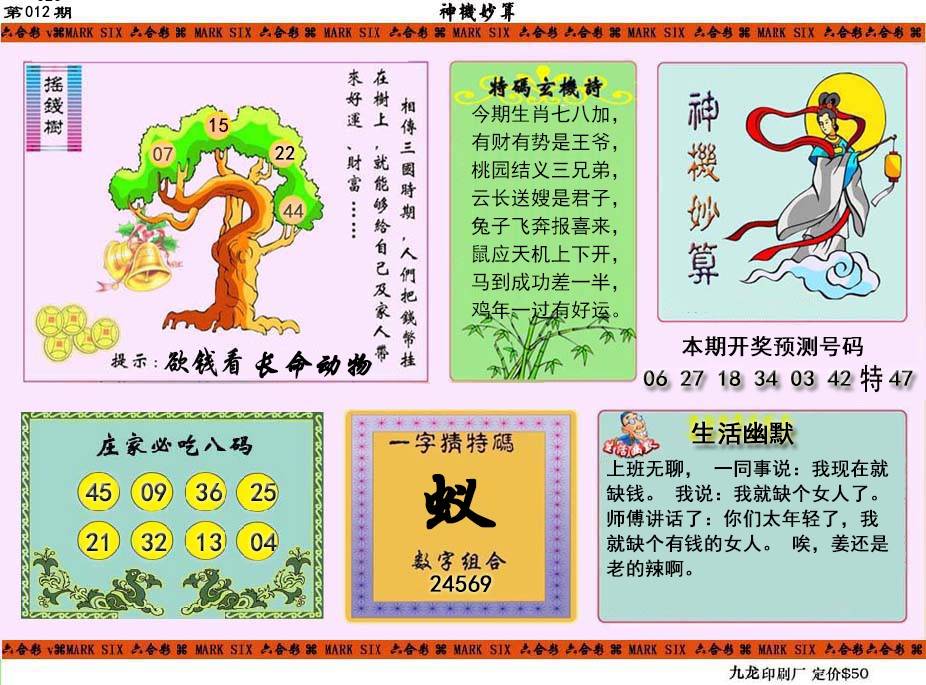 第012期
神機妙算
六合彩 MARK SIX 六合彩 MARK SIX 六合彩 MARK SIX 六合彩 MARK SIX 六合彩 MARK SIX 六合彩 MARK SIX 六合彩 MARK SIX 六合彩六合彩
搖錢樹
相傳三國時期，人們把錢幣挂
在樹上，就能够給自己及家人帶
來好運、財富……
15
07
22
44
提示:欲钱看长命动物
特碼玄機詩
今期生肖七八加，
有财有势是王爷，
桃园结义三兄弟，
云长送嫂是君子，
兔子飞奔报喜来，
鼠应天机上下开，
马到成功差一半，
鸡年一过有好运。
神機妙算
本期开奖预测号码
06 27 18 34 03 42 特 47
庄家必吃八码
45 09 36 25
21 32 13 04
一字猜特碼
蚁
数字组合
24569
生活幽默
生活幽默
上班无聊， 一同事说：我现在就
缺钱。 我说：我就缺个女人了。
师傅讲话了：你们太年轻了，我
就缺个有钱的女人。 唉，姜还是
老的辣啊。
六合彩 MARK SIX 六合彩 MARK SIX 六合彩 MARK SIX 六合彩 MARK SIX 六合彩 MARK SIX 六合彩 MARK SIX 六合彩 MARK SIX 六合彩六合彩
九龙印刷厂 定价$50